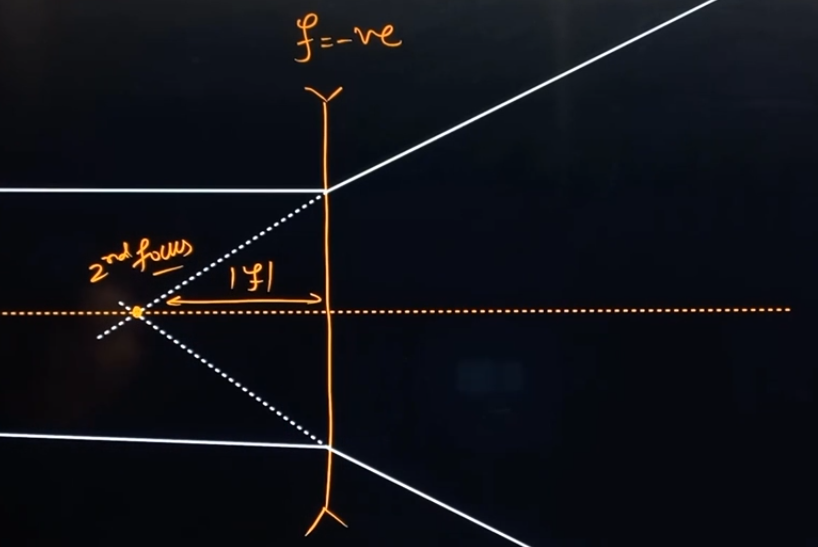 f=-ve
2nd focus
|f|